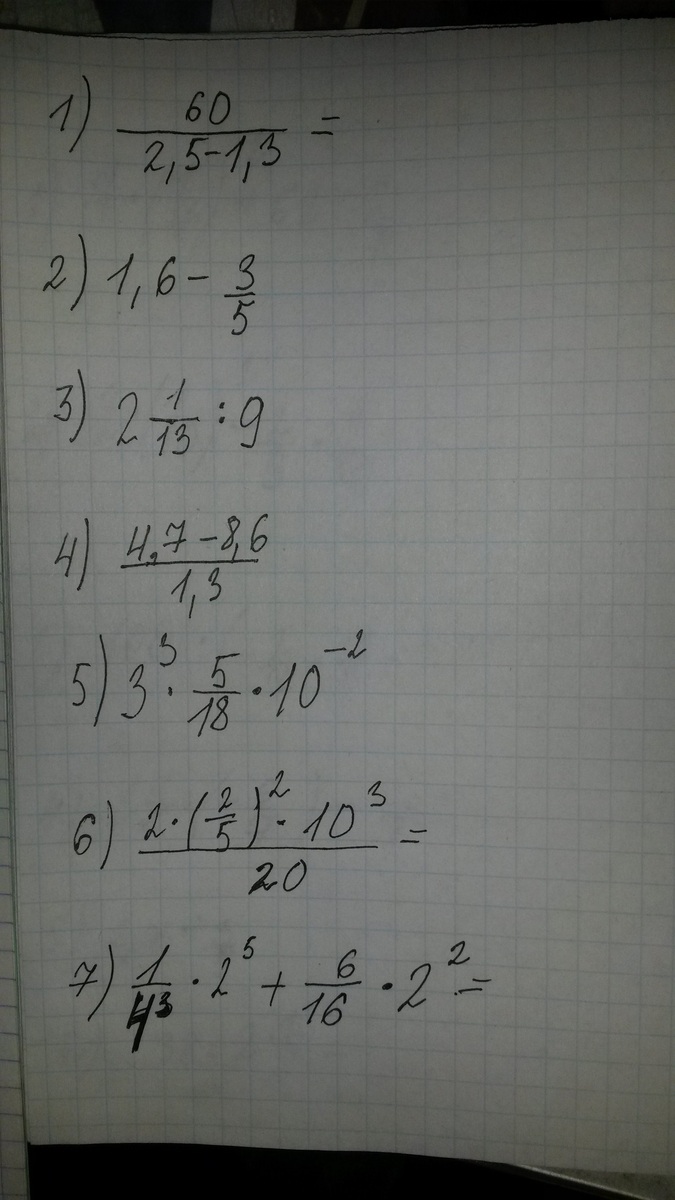 1) 60 / (2,5-1,3) =
2) 1,6 - 3/5
3) 2 1/13 : 9
4) (4,7 - 8,6) / 1,3
5) 3³ · 5/18 · 10⁻²
6) (2 · (2/5)² · 10³) / 20 =
7) 1/4³ · 2⁵ + 6/16 · 2² =